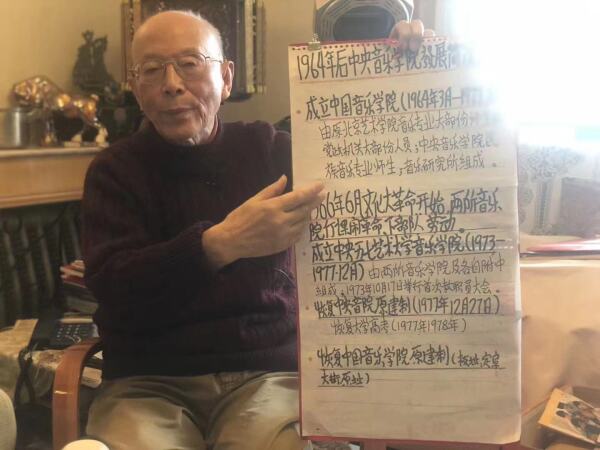 1964年后中央音乐学院发展简
成立中国音乐学院(1964年3月—19
由原北京艺术学院音乐专业大部份
党政机关大部份人员;中央音乐学院民
族音乐专业师生;音乐研究所组成。
966年6月文化大革命开始,两所音乐
院行课闹革命,下部队劳动。
成立中央五七艺术大学音乐学院(1973—
1977.12月)由两所音乐学院及各自附中
组成,1973年10月17日举行首次教职员大会。
恢复中央音院原建制(1977年12月27日)
恢复大学高考(1977年1978年)
恢复中国音乐学院原建制(
大街原址)